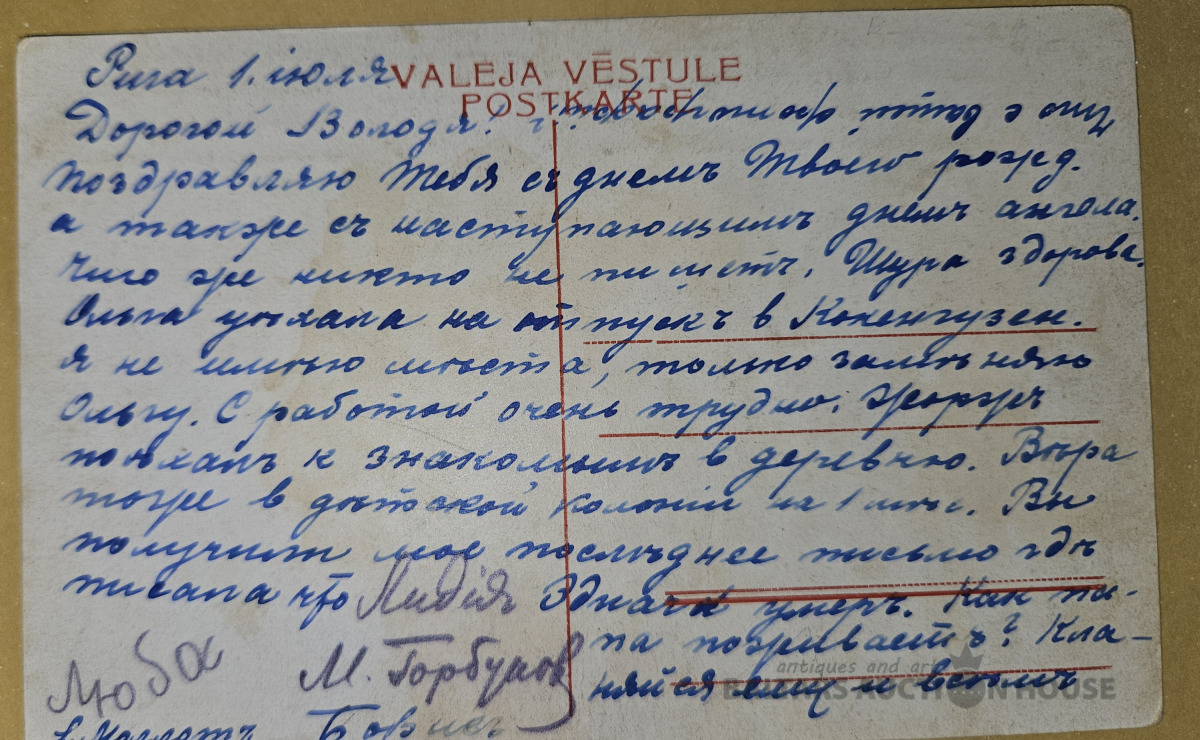 Рига 1. іюля
VALEJA VĒSTULE
POSTKARTE
Дорогой Володя!
Поздравляю Тебя съ днемъ Твоего рожд.
а также съ наступающимъ днемъ ангела.
Чего же никто не пишетъ. Шура здорова.
Ольга уѣхала на отпускъ в Кокенгузен.
Я не имѣю мѣста, только замѣняю
Ольгу. С работой очень трудно. Жоржъ
поѣхалъ к знакомымъ в деревню. Вѣра
тоже в дѣтской колоніи на 1 мѣс. Вы
получили мое послѣднее письмо гдѣ
писала что Лидія умеръ. Как па-
па поживаетъ? Кла-
няйся ему и всѣмъ
Люба
М. Горбунов
Борис
antiques and art
AUCTION HOUSE